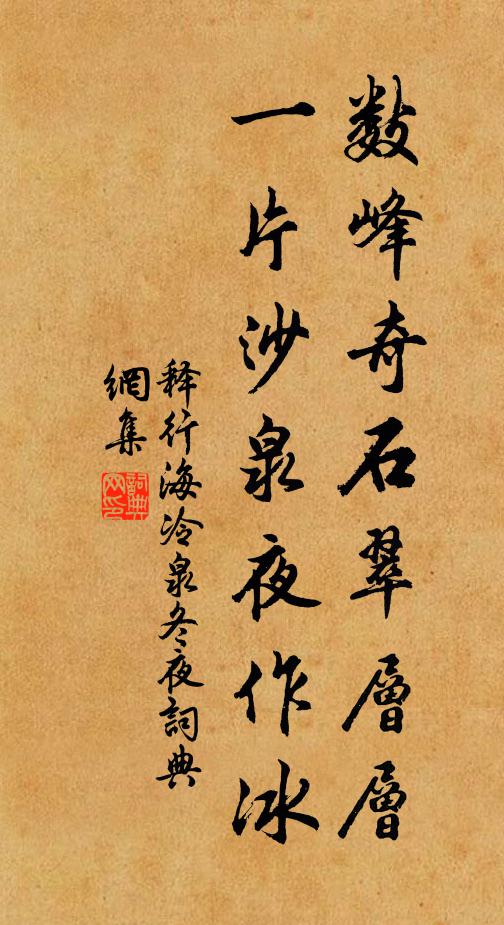 數峰奇石翠層層
一片沙泉夜作冰
释行海冷泉冬夜詞典
網集
詞典
网印